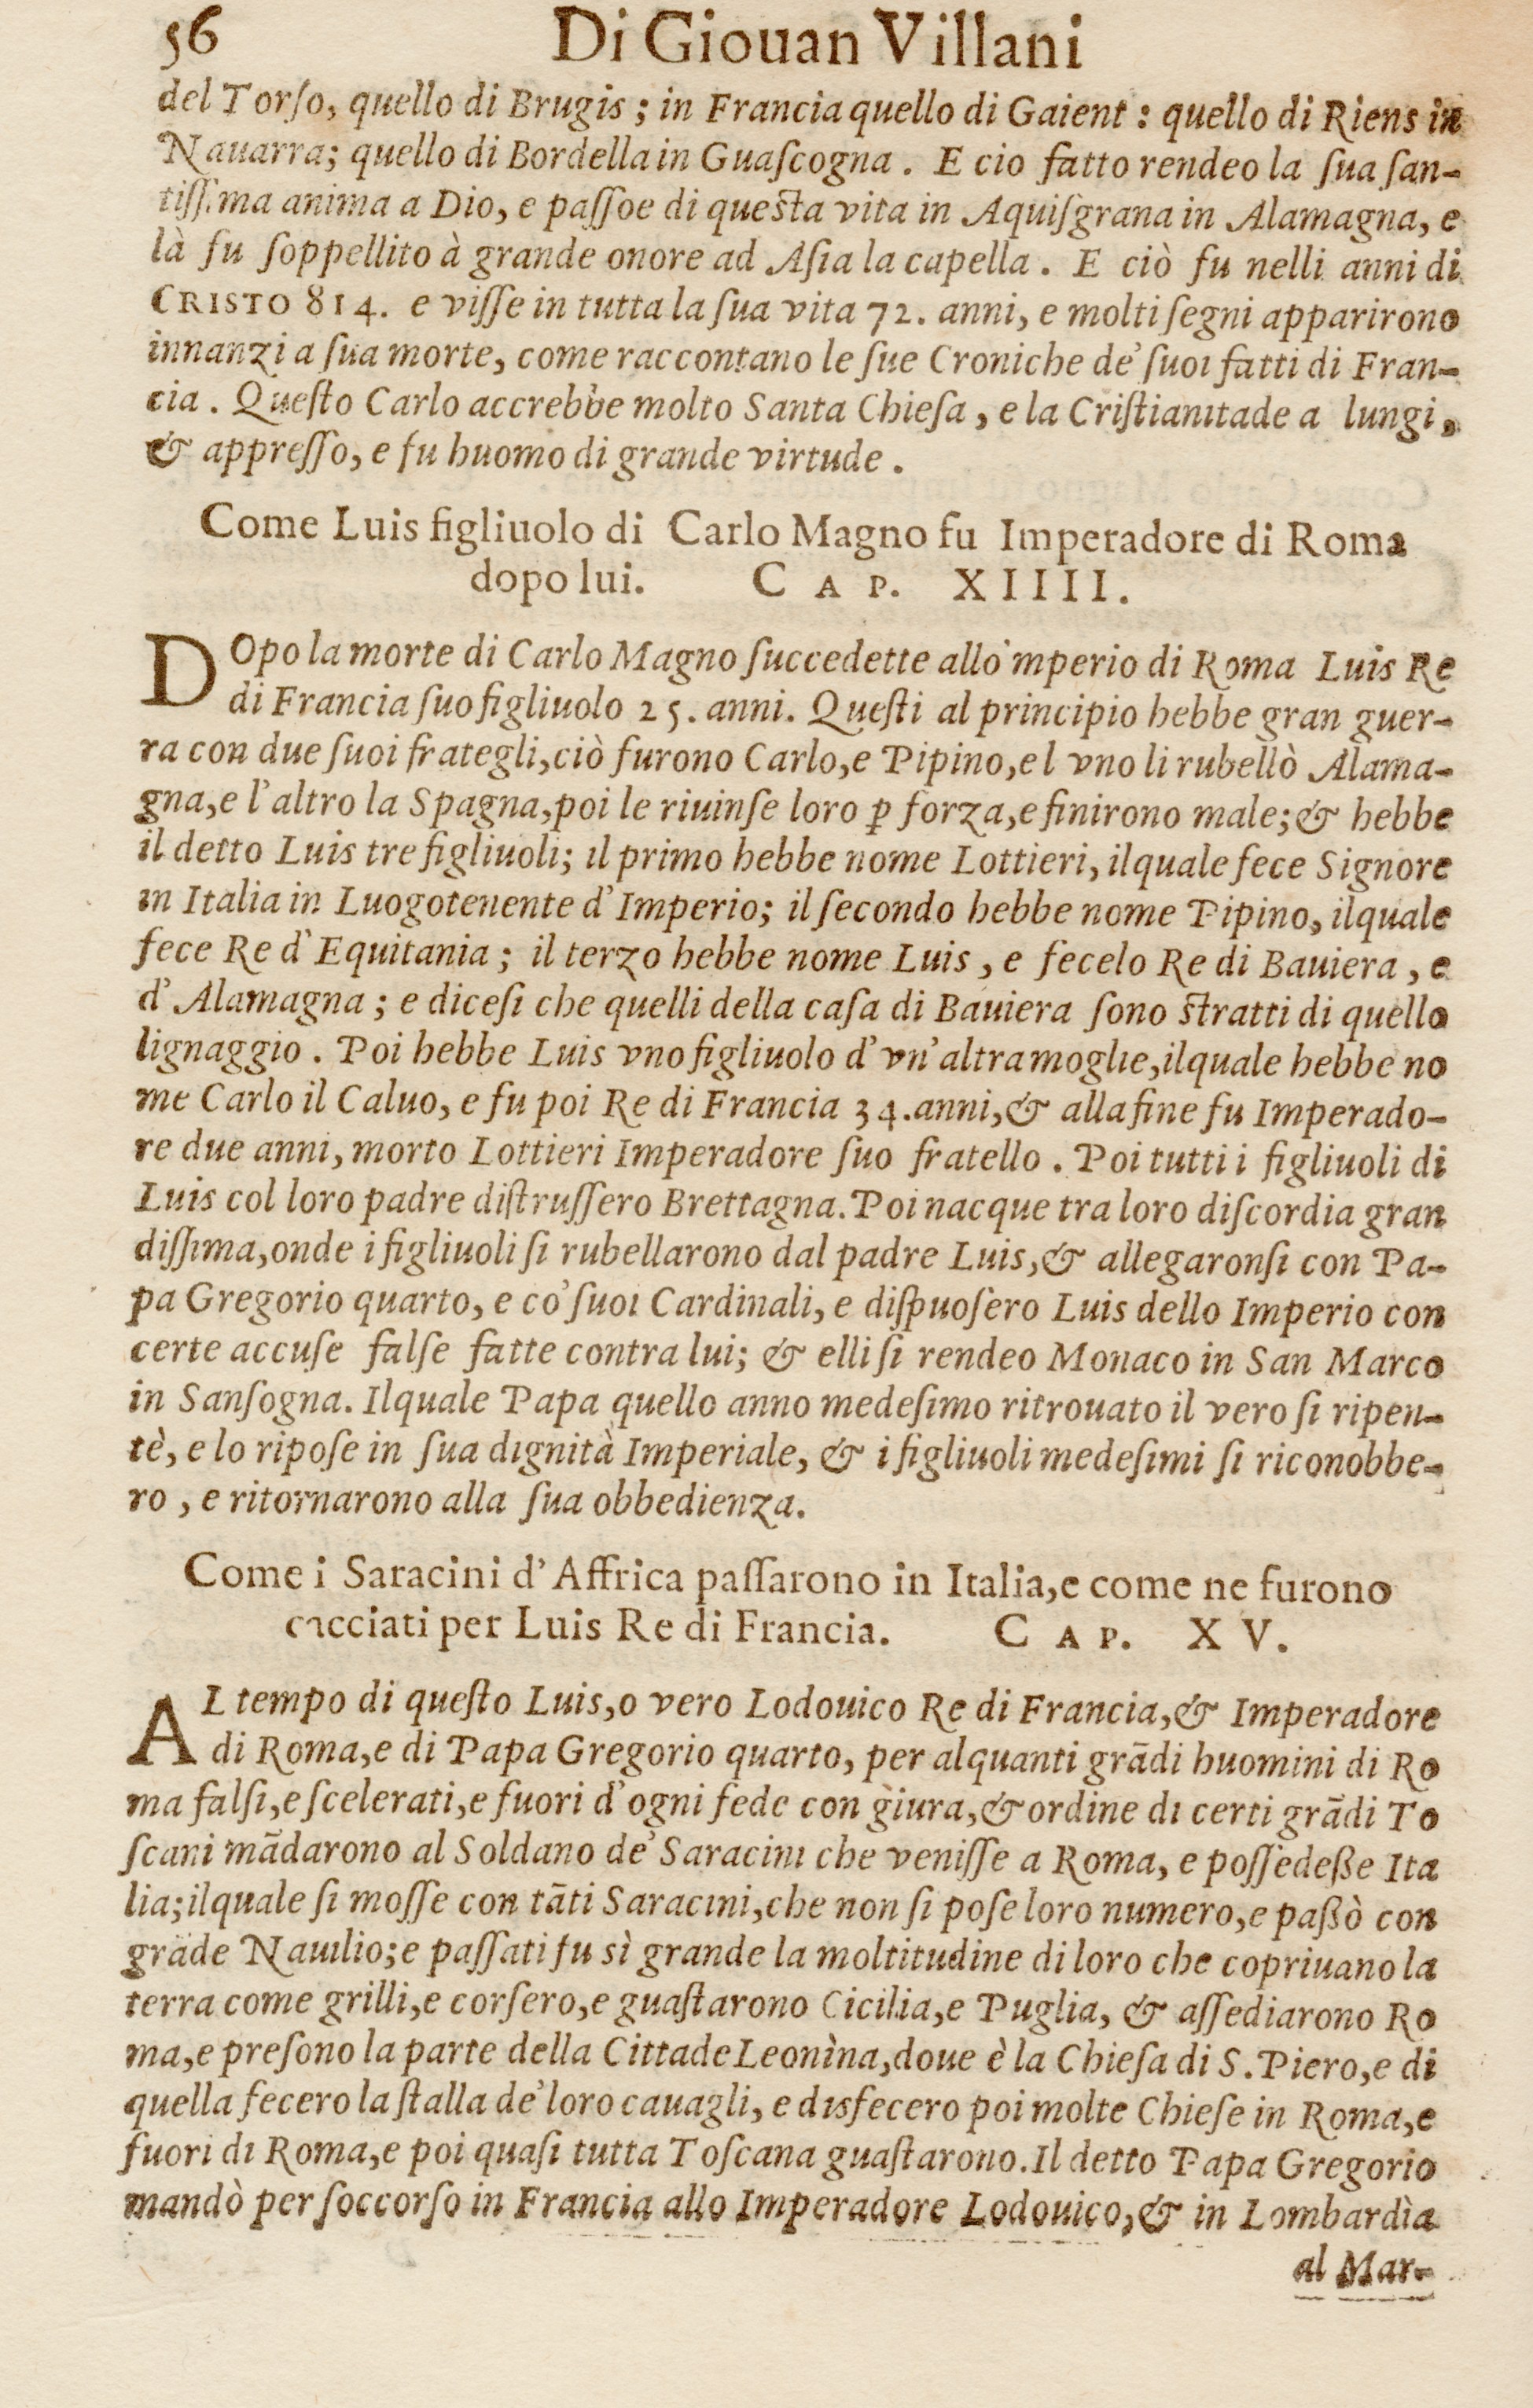 56 Di Giouan Villani
del Torſo, quello di Brugis; in Francia quello di Gaient: quello di Riens in
Nauarra; quello di Bordella in Guaſcogna. E cio fatto rendeo la ſua ſan-
tiſſima anima a Dio, e paſſoe di queſta vita in Aquiſgrana in Alamagna, e
là fu ſoppellito à grande onore ad Aſia la capella. E ciò fu nelli anni di
CRISTO 814. e viſſe in tutta la ſua vita 72. anni, e molti ſegni apparirono
innanzi a ſua morte, come raccontano le ſue Croniche de' ſuoi fatti di Fran-
cia. Queſto Carlo accrebbe molto Santa Chieſa, e la Criſtianitade a lungi,
& appreſſo, e fu huomo di grande virtude.
Come Luis figliuolo di Carlo Magno fu Imperadore di Roma
dopo lui. CAP. XIIII.
DOpo la morte di Carlo Magno ſuccedette allo'mperio di Roma Luis Re
di Francia ſuo figliuolo 25. anni. Queſti al principio hebbe gran guer-
ra con due ſuoi frategli, ciò furono Carlo, e Pipino, e l vno li rubellò Alama-
gna, e l'altro la Spagna, poi le riuinſe loro ꝑ forza, e finirono male; & hebbe
il detto Luis tre figliuoli; il primo hebbe nome Lottieri, ilquale fece Signore
in Italia in Luogotenente d'Imperio; il ſecondo hebbe nome Pipino, ilquale
fece Re d'Equitania; il terzo hebbe nome Luis, e fecelo Re di Bauiera, e
d'Alamagna; e diceſi che quelli della caſa di Bauiera ſono ſtratti di quello
lignaggio. Poi hebbe Luis vno figliuolo d'vn'altra moglie, ilquale hebbe no
me Carlo il Caluo, e fu poi Re di Francia 34. anni, & alla fine fu Imperado-
re due anni, morto Lottieri Imperadore ſuo fratello. Poi tutti i figliuoli di
Luis col loro padre diſtruſſero Brettagna. Poi nacque tra loro diſcordia gran
diſſima, onde i figliuoli ſi rubellarono dal padre Luis, & allegaronſi con Pa-
pa Gregorio quarto, e co' ſuoi Cardinali, e diſpuoſero Luis dello Imperio con
certe accuſe falſe fatte contra lui; & elli ſi rendeo Monaco in San Marco
in Sanſogna. Ilquale Papa quello anno medeſimo ritrouato il vero ſi ripen-
tè, e lo ripoſe in ſua dignità Imperiale, & i figliuoli medeſimi ſi riconobbe-
ro, e ritornarono alla ſua obbedienza.
Come i Saracini d'Affrica paſſarono in Italia, e come ne furono
cacciati per Luis Re di Francia. CAP. XV.
AL tempo di queſto Luis, o vero Lodouico Re di Francia, & Imperadore
di Roma, e di Papa Gregorio quarto, per alquanti grādi huomini di Ro
ma falſi, e ſcelerati, e fuori d'ogni fede con giura, & ordine di certi grādi To
ſcani mādarono al Soldano de' Saracini che veniſſe a Roma, e poſſedeße Ita
lia; ilquale ſi moſſe con tāti Saracini, che non ſi poſe loro numero, e paßò con
grāde Nauilio; e paſſati fu sì grande la moltitudine di loro che copriuano la
terra come grilli, e corſero, e guaſtarono Cicilia, e Puglia, & aſſediarono Ro
ma, e preſono la parte della Cittade Leonìna, doue è la Chieſa di S. Piero, e di
quella fecero la ſtalla de' loro cauagli, e disfecero poi molte Chieſe in Roma, e
fuori di Roma, e poi quaſi tutta Toſcana guaſtarono. Il detto Papa Gregorio
mandò per ſoccorſo in Francia allo Imperadore Lodouico, & in Lombardìa
al Mar-